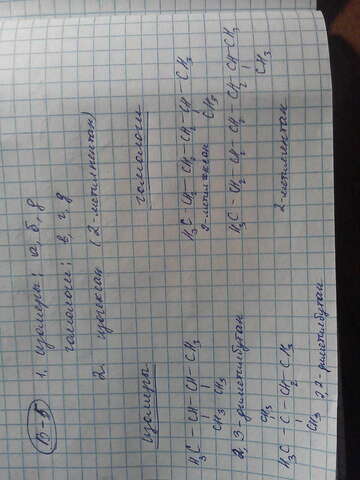 В-5
1. изомеры: а, б, д
гомологи: в, г, д
2. изогексан (2-метилпентан)
изомеры
H₃C – CH – CH – CH₃
CH₃ CH₃
2,3-диметилбутан
CH₃
H₃C – C – CH₂ – CH₃
CH₃ 2,2-диметилбутан
гомологи
H₃C – CH₂ – CH₂ – CH₂ – CH – CH₃
2-метилгексан CH₃
H₃C – CH₂ – CH₂ – CH₂ – CH₂ – CH – CH₃
CH₃
2-метилгептан